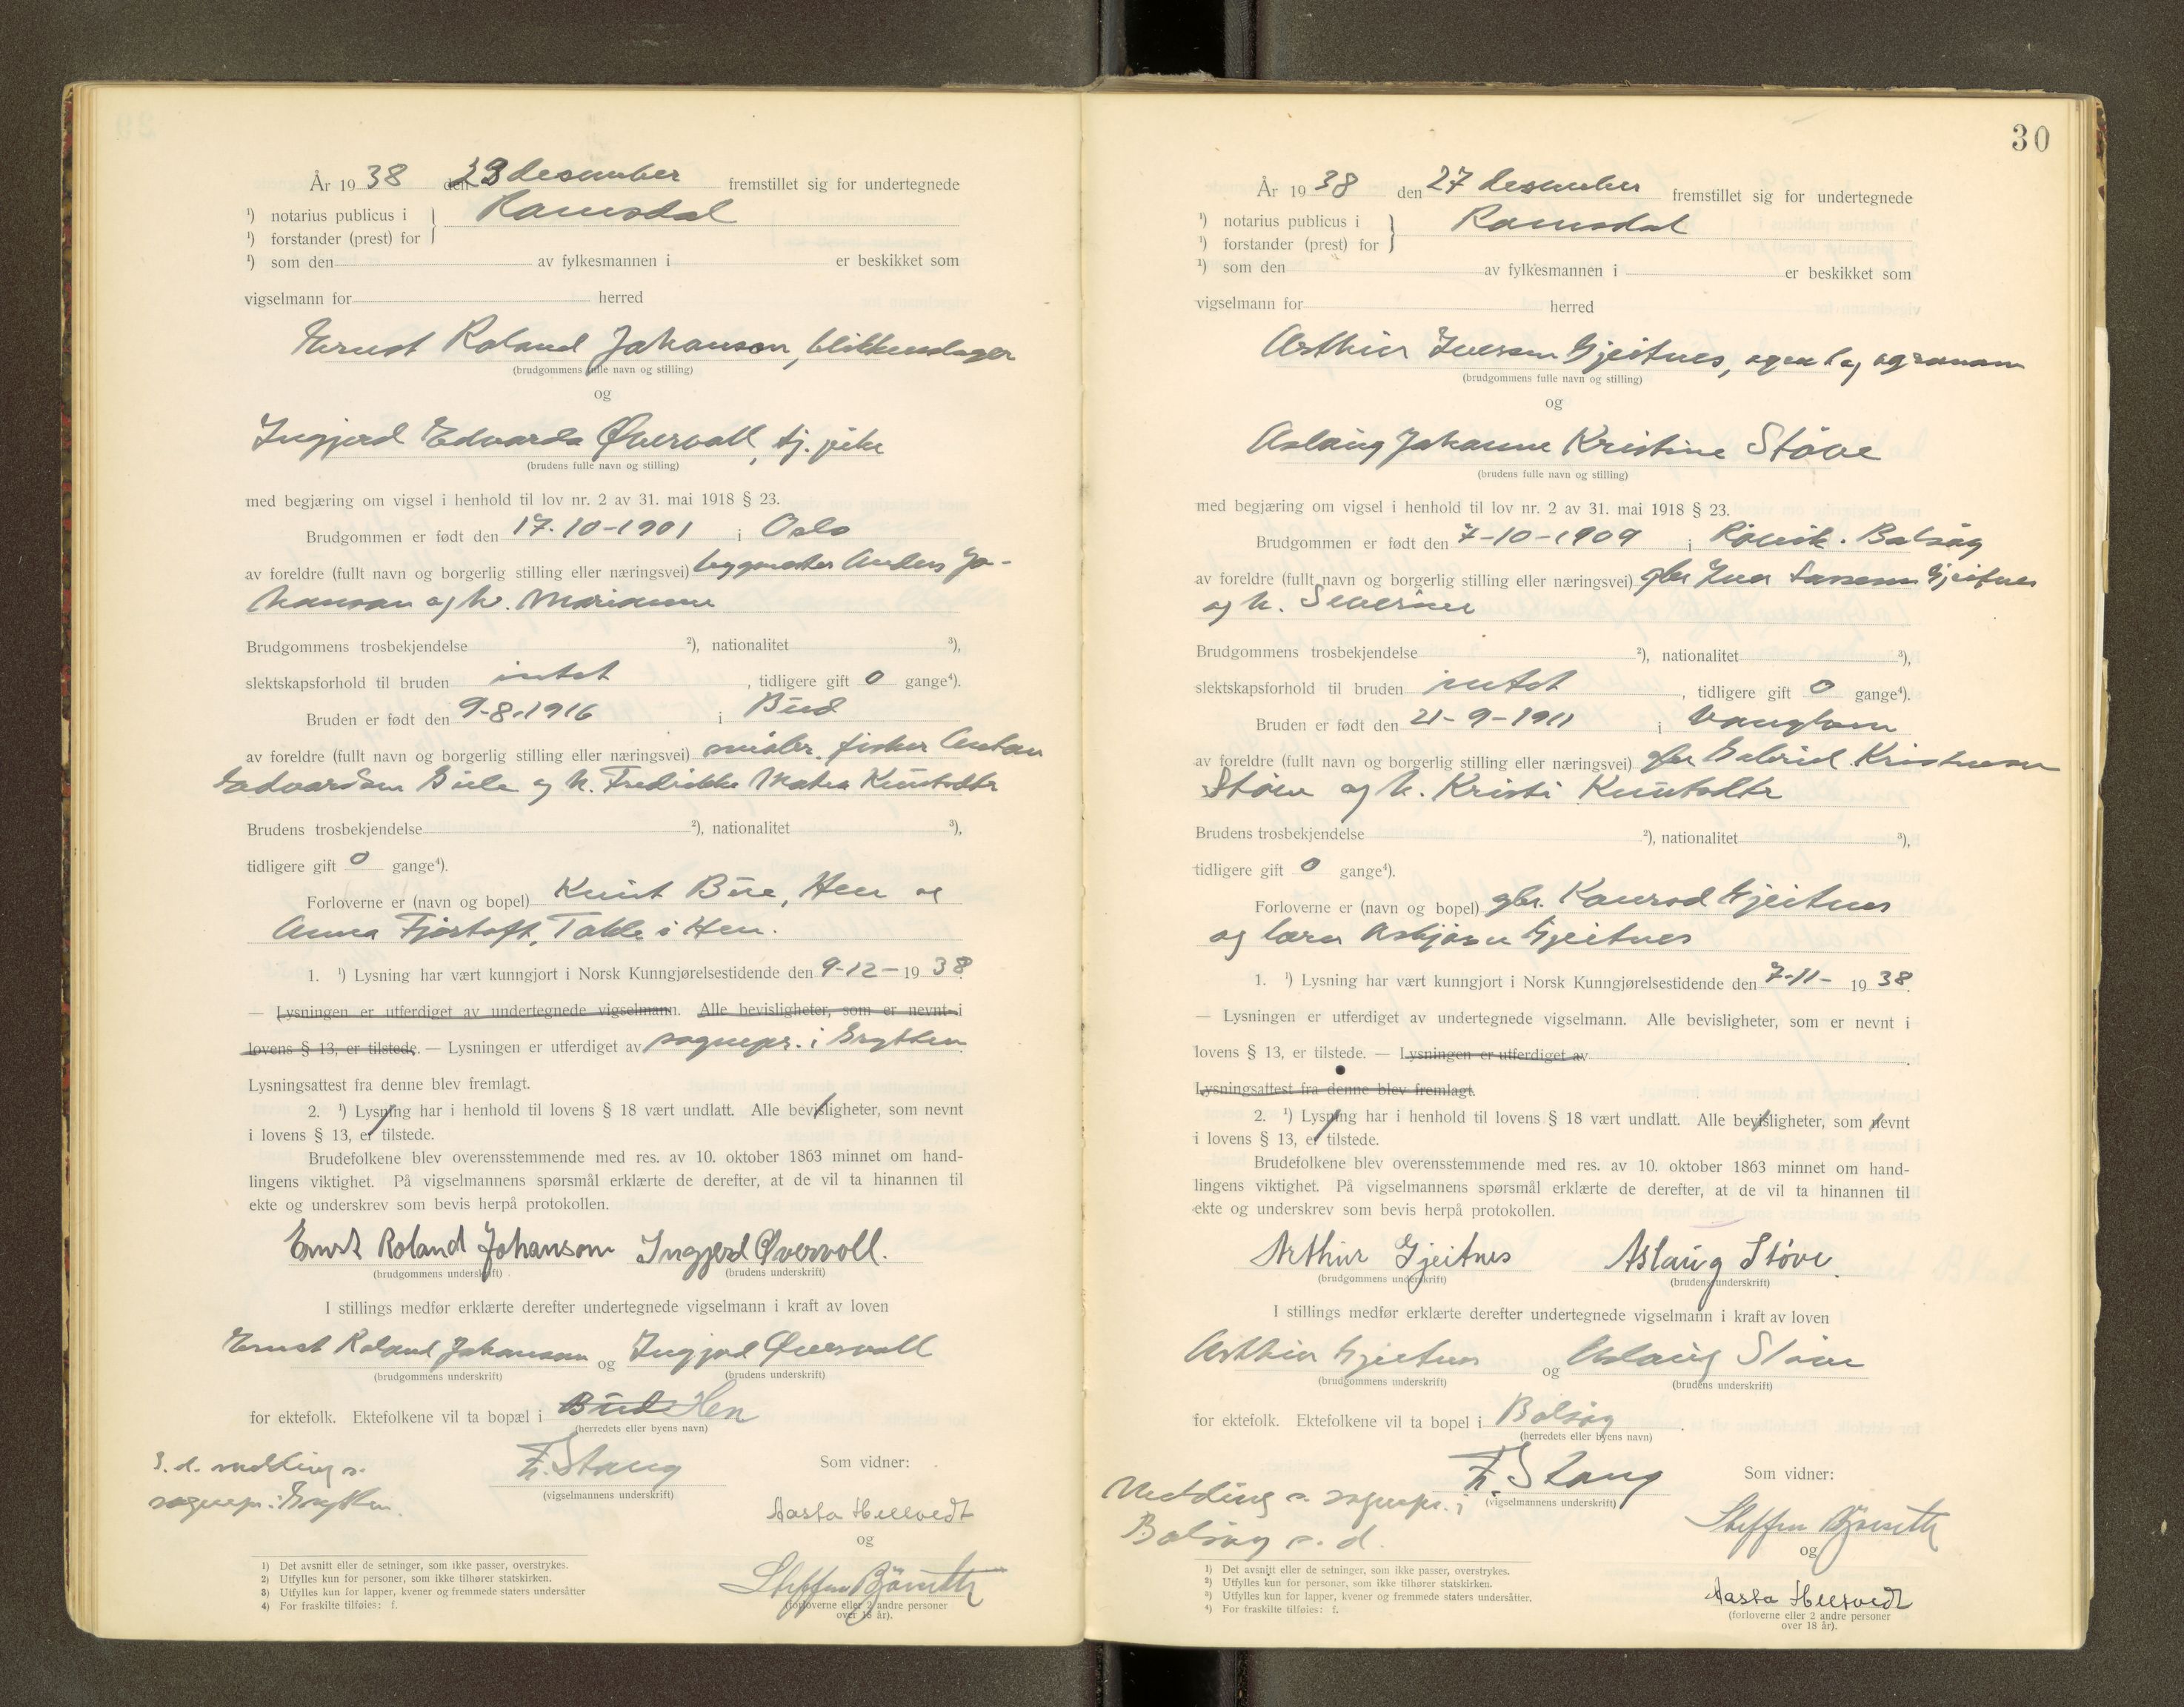 År 19 38 den 23 desember fremstillet sig for undertegnede
¹) notarius publicus i } Romsdal
¹) forstander (prest) for
¹) som den av fylkesmannen i er beskikket som
vigselmann for herred
Ernst Roland Johanson, blikkenslager
(brudgommens fulle navn og stilling)
og
Ingjerd Edvarda Øvervoll, tj. pike
(brudens fulle navn og stilling)
med begjæring om vigsel i henhold til lov nr. 2 av 31. mai 1918 § 23.
Brudgommen er født den 17-10-1901 i Oslo
av foreldre (fullt navn og borgerlig stilling eller næringsvei) byggmester Anders Jo-
hanson og h. Marianne
Brudgommens trosbekjendelse ²), nationalitet ³),
slektskapsforhold til bruden intet, tidligere gift 0 gange⁴).
Bruden er født den 9-8-1916 i Bud
av foreldre (fullt navn og borgerlig stilling eller næringsvei) småbr. fisker Anton
Edvardsen og h. Fredrikke Knutsdtr
Brudens trosbekjendelse ²), nationalitet ³),
tidligere gift 0 gange⁴).
Forloverne er (navn og bopel) Knut Bue, Hen og
Anna Fjørtoft, Tokle i Hen.
1. ¹) Lysning har vært kunngjort i Norsk Kunngjørelsestidende den 9-12- 19 38.
— Lysningen er utferdiget av undertegnede vigselmann. Alle bevisligheter, som er nevnt i
lovens § 13, er tilstede. — Lysningen er utferdiget av sognepr. i Grytten.
Lysningsattest fra denne blev fremlagt.
2. ¹) Lysning har i henhold til lovens § 18 vært undlatt. Alle bevisligheter, som nevnt
i lovens § 13, er tilstede.
Brudefolkene blev overensstemmende med res. av 10. oktober 1863 minnet om hand-
lingens viktighet. På vigselmannens spørsmål erklærte de derefter, at de vil ta hinannen til
ekte og underskrev som bevis herpå protokollen.
Ernst Roland Johanson Ingjerd Øvervoll.
(brudgommens underskrift) (brudens underskrift)
I stillings medfør erklærte derefter undertegnede vigselmann i kraft av loven
Ernst Roland Johanson og Ingjerd Øvervoll
(brudgommens underskrift) (brudens underskrift)
for ektefolk. Ektefolkene vil ta bopæl i Bud Hen
(herredets eller byens navn)
S. d. melding s.
sognepr. i Grytten.
F. Stang
(vigselmannens underskrift)
Som vidner:
Aasta Hellvedt
og
Steffen
(forloverne eller 2 andre personer
over 18 år).
1) Det avsnitt eller de setninger, som ikke passer, overstrykes.
2) Utfylles kun for personer, som ikke tilhører statskirken.
3) Utfylles kun for lapper, kvener og fremmede staters undersåtter
4) For fraskilte tilføies: f.
30
År 19 38 den 27 desember fremstillet sig for undertegnede
¹) notarius publicus i } Romsdal
¹) forstander (prest) for
¹) som den av fylkesmannen i er beskikket som
vigselmann for herred
Arthur Iversen Gjeitnes, agent og agronom
(brudgommens fulle navn og stilling)
og
Aslaug Johanne Kristine Støve
(brudens fulle navn og stilling)
med begjæring om vigsel i henhold til lov nr. 2 av 31. mai 1918 § 23.
Brudgommen er født den 7-10-1909 i Røvik. Bolsøy
av foreldre (fullt navn og borgerlig stilling eller næringsvei) gbr Iver Gjeitnes
og h. Severine
Brudgommens trosbekjendelse ²), nationalitet ³),
slektskapsforhold til bruden intet, tidligere gift 0 gange⁴).
Bruden er født den 21-9-1911 i
av foreldre (fullt navn og borgerlig stilling eller næringsvei) gbr Gabriel Kristensen
Støve og h. Kristi Knutsdtr
Brudens trosbekjendelse ²), nationalitet ³),
tidligere gift 0 gange⁴).
Forloverne er (navn og bopel) gbr. Konrad Gjeitnes
og lærer Asbjørn Gjeitnes
1. ¹) Lysning har vært kunngjort i Norsk Kunngjørelsestidende den 7-11- 19 38.
— Lysningen er utferdiget av undertegnede vigselmann. Alle bevisligheter, som er nevnt i
lovens § 13, er tilstede. — Lysningen er utferdiget av
Lysningsattest fra denne blev fremlagt.
2. ¹) Lysning har i henhold til lovens § 18 vært undlatt. Alle bevisligheter, som nevnt
i lovens § 13, er tilstede.
Brudefolkene blev overensstemmende med res. av 10. oktober 1863 minnet om hand-
lingens viktighet. På vigselmannens spørsmål erklærte de derefter, at de vil ta hinannen til
ekte og underskrev som bevis herpå protokollen.
Arthur Gjeitnes Aslaug Støve.
(brudgommens underskrift) (brudens underskrift)
I stillings medfør erklærte derefter undertegnede vigselmann i kraft av loven
Arthur Gjeitnes og Aslaug Støve
(brudgommens underskrift) (brudens underskrift)
for ektefolk. Ektefolkene vil ta bopel i Bolsøy.
(herredets eller byens navn)
Melding s. sognepr. i
Bolsøy s. d.
F. Stang
(vigselmannens underskrift)
Som vidner:
Steffen
og
Aasta Hellvedt
(forloverne eller 2 andre personer
over 18 år).
¹) Det avsnitt eller de setninger, som ikke passer, overstrykes.
²) Utfylles kun for personer, som ikke tilhører statskirken.
³) Utfylles kun for lapper, kvener og fremmede staters undersåtter.
⁴) For fraskilte tilføies: f.